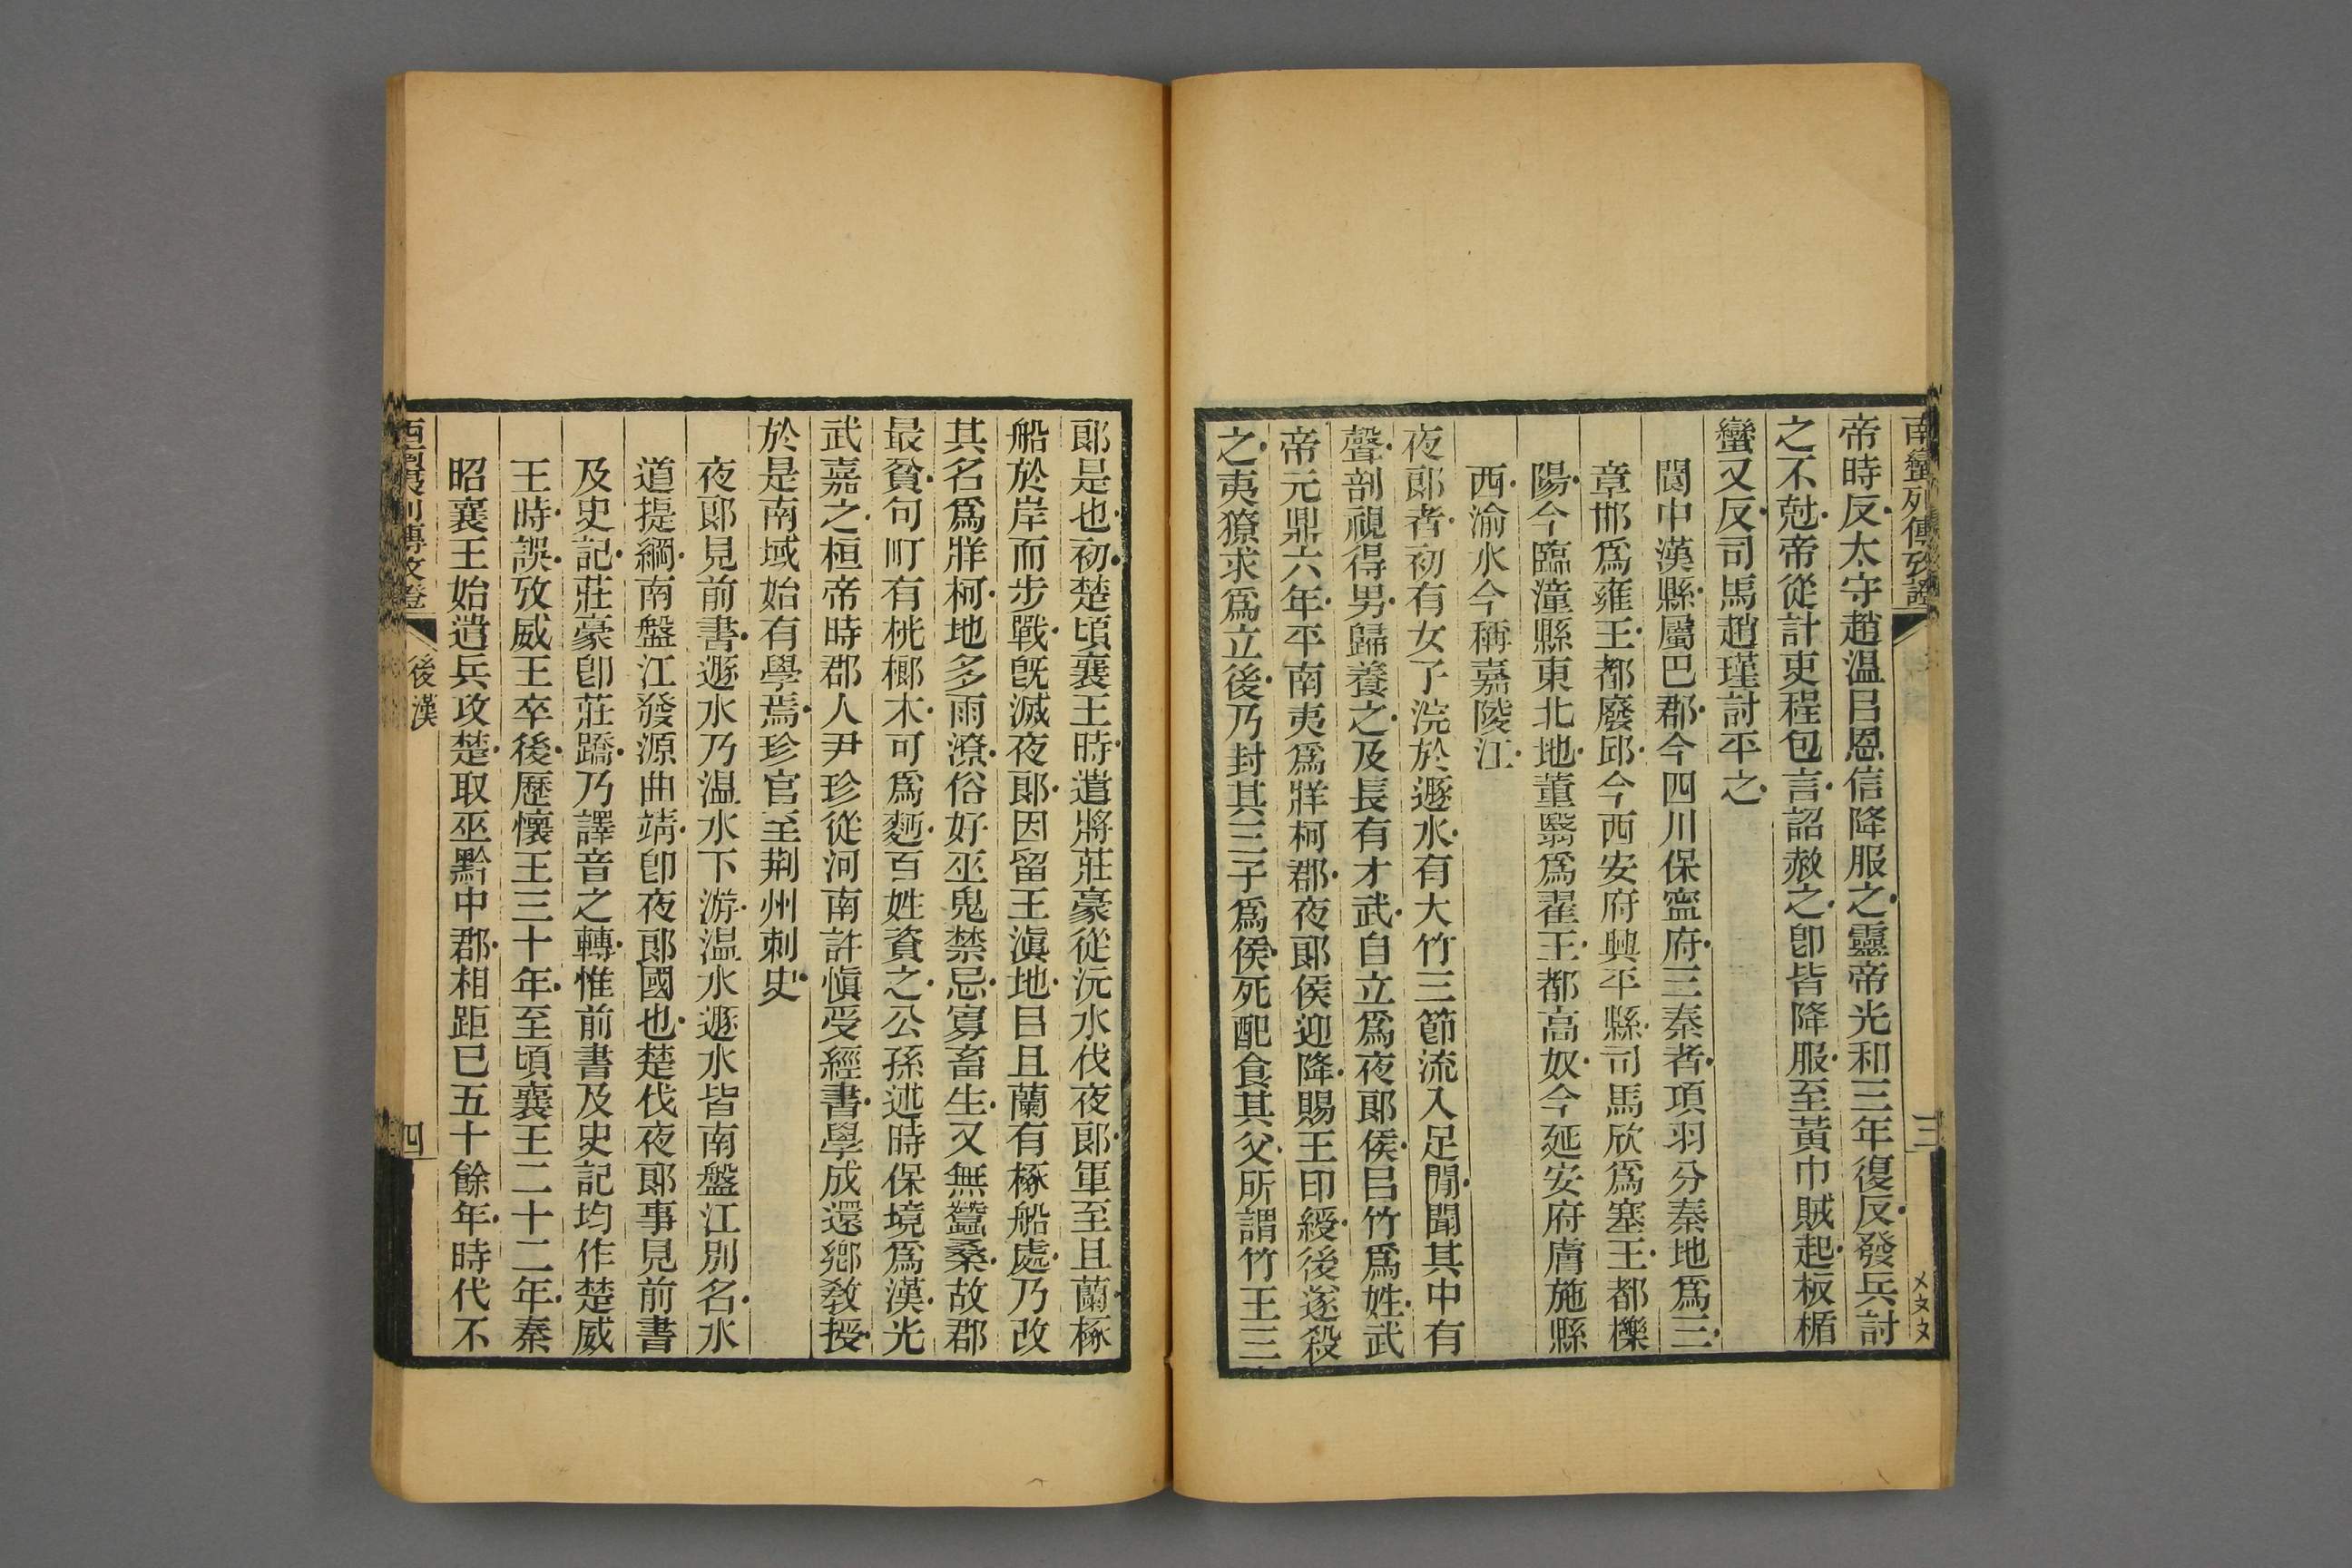 南蠻列傳攷證
三
帝時反太守趙温㠯恩信降服之靈帝光和三年復反發兵討
之不尅帝從計吏程包言詔赦之卽皆降服至黃巾賊起板楯
蠻又反司馬趙瑾討平之
閬中漢縣屬巴郡今四川保寧府三秦者項羽分秦地爲三
章邯爲雍王都廢邱今西安府興平縣司馬欣爲塞王都櫟
陽今臨潼縣東北地董翳爲翟王都高奴今延安府膚施縣
西渝水今稱嘉陵江
夜郞者初有女了浣於遯水有大竹三節流入足閒聞其中有
聲剖視得男歸養之及長有才武自立爲夜郞侯㠯竹爲姓武
帝元鼎六年平南夷爲牂柯郡夜郞侯迎降賜王印綬後遂殺
之夷獠求爲立後乃封其三子爲侯死配食其父所謂竹王三
郞是也初楚頃襄王時遣將莊豪從沅水伐夜郞軍至且蘭椓
船於岸而步戰旣滅夜郞因留王滇地㠯且蘭有椓船處乃改
其名爲牂柯地多雨潦俗好巫鬼禁忌寡畜生又無蠶桑故郡
最貧句町有桄榔木可爲麪百姓資之公孫述時保境爲漢光
武嘉之桓帝時郡人尹珍從河南許愼受經書學成還鄕敎授
於是南域始有學焉珍官至荆州刺史
夜郞見前書遯水乃温水下游温水遯水皆南盤江別名水
道提綱南盤江發源曲靖卽夜郞國也楚伐夜郞事見前書
及史記莊豪卽莊蹻乃譯音之轉惟前書及史記均作楚威
王時誤攷威王卒後歷懷王三十年至頃襄王二十二年秦
昭襄王始遣兵攻楚取巫黔中郡相距已五十餘年時代不
西南夷列傳攷證
後漢
四